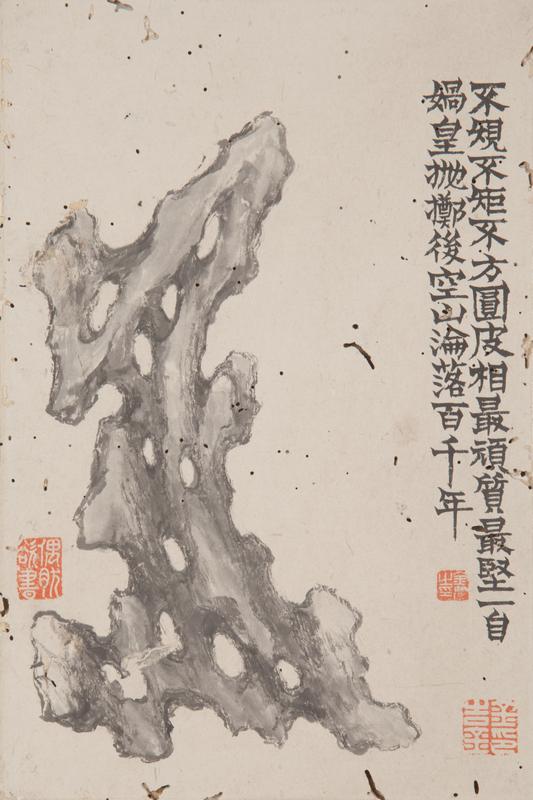 不規不矩不方圓皮相最頑質最堅一自
媧皇拋擲後空山淪落百千年
偶然欲書